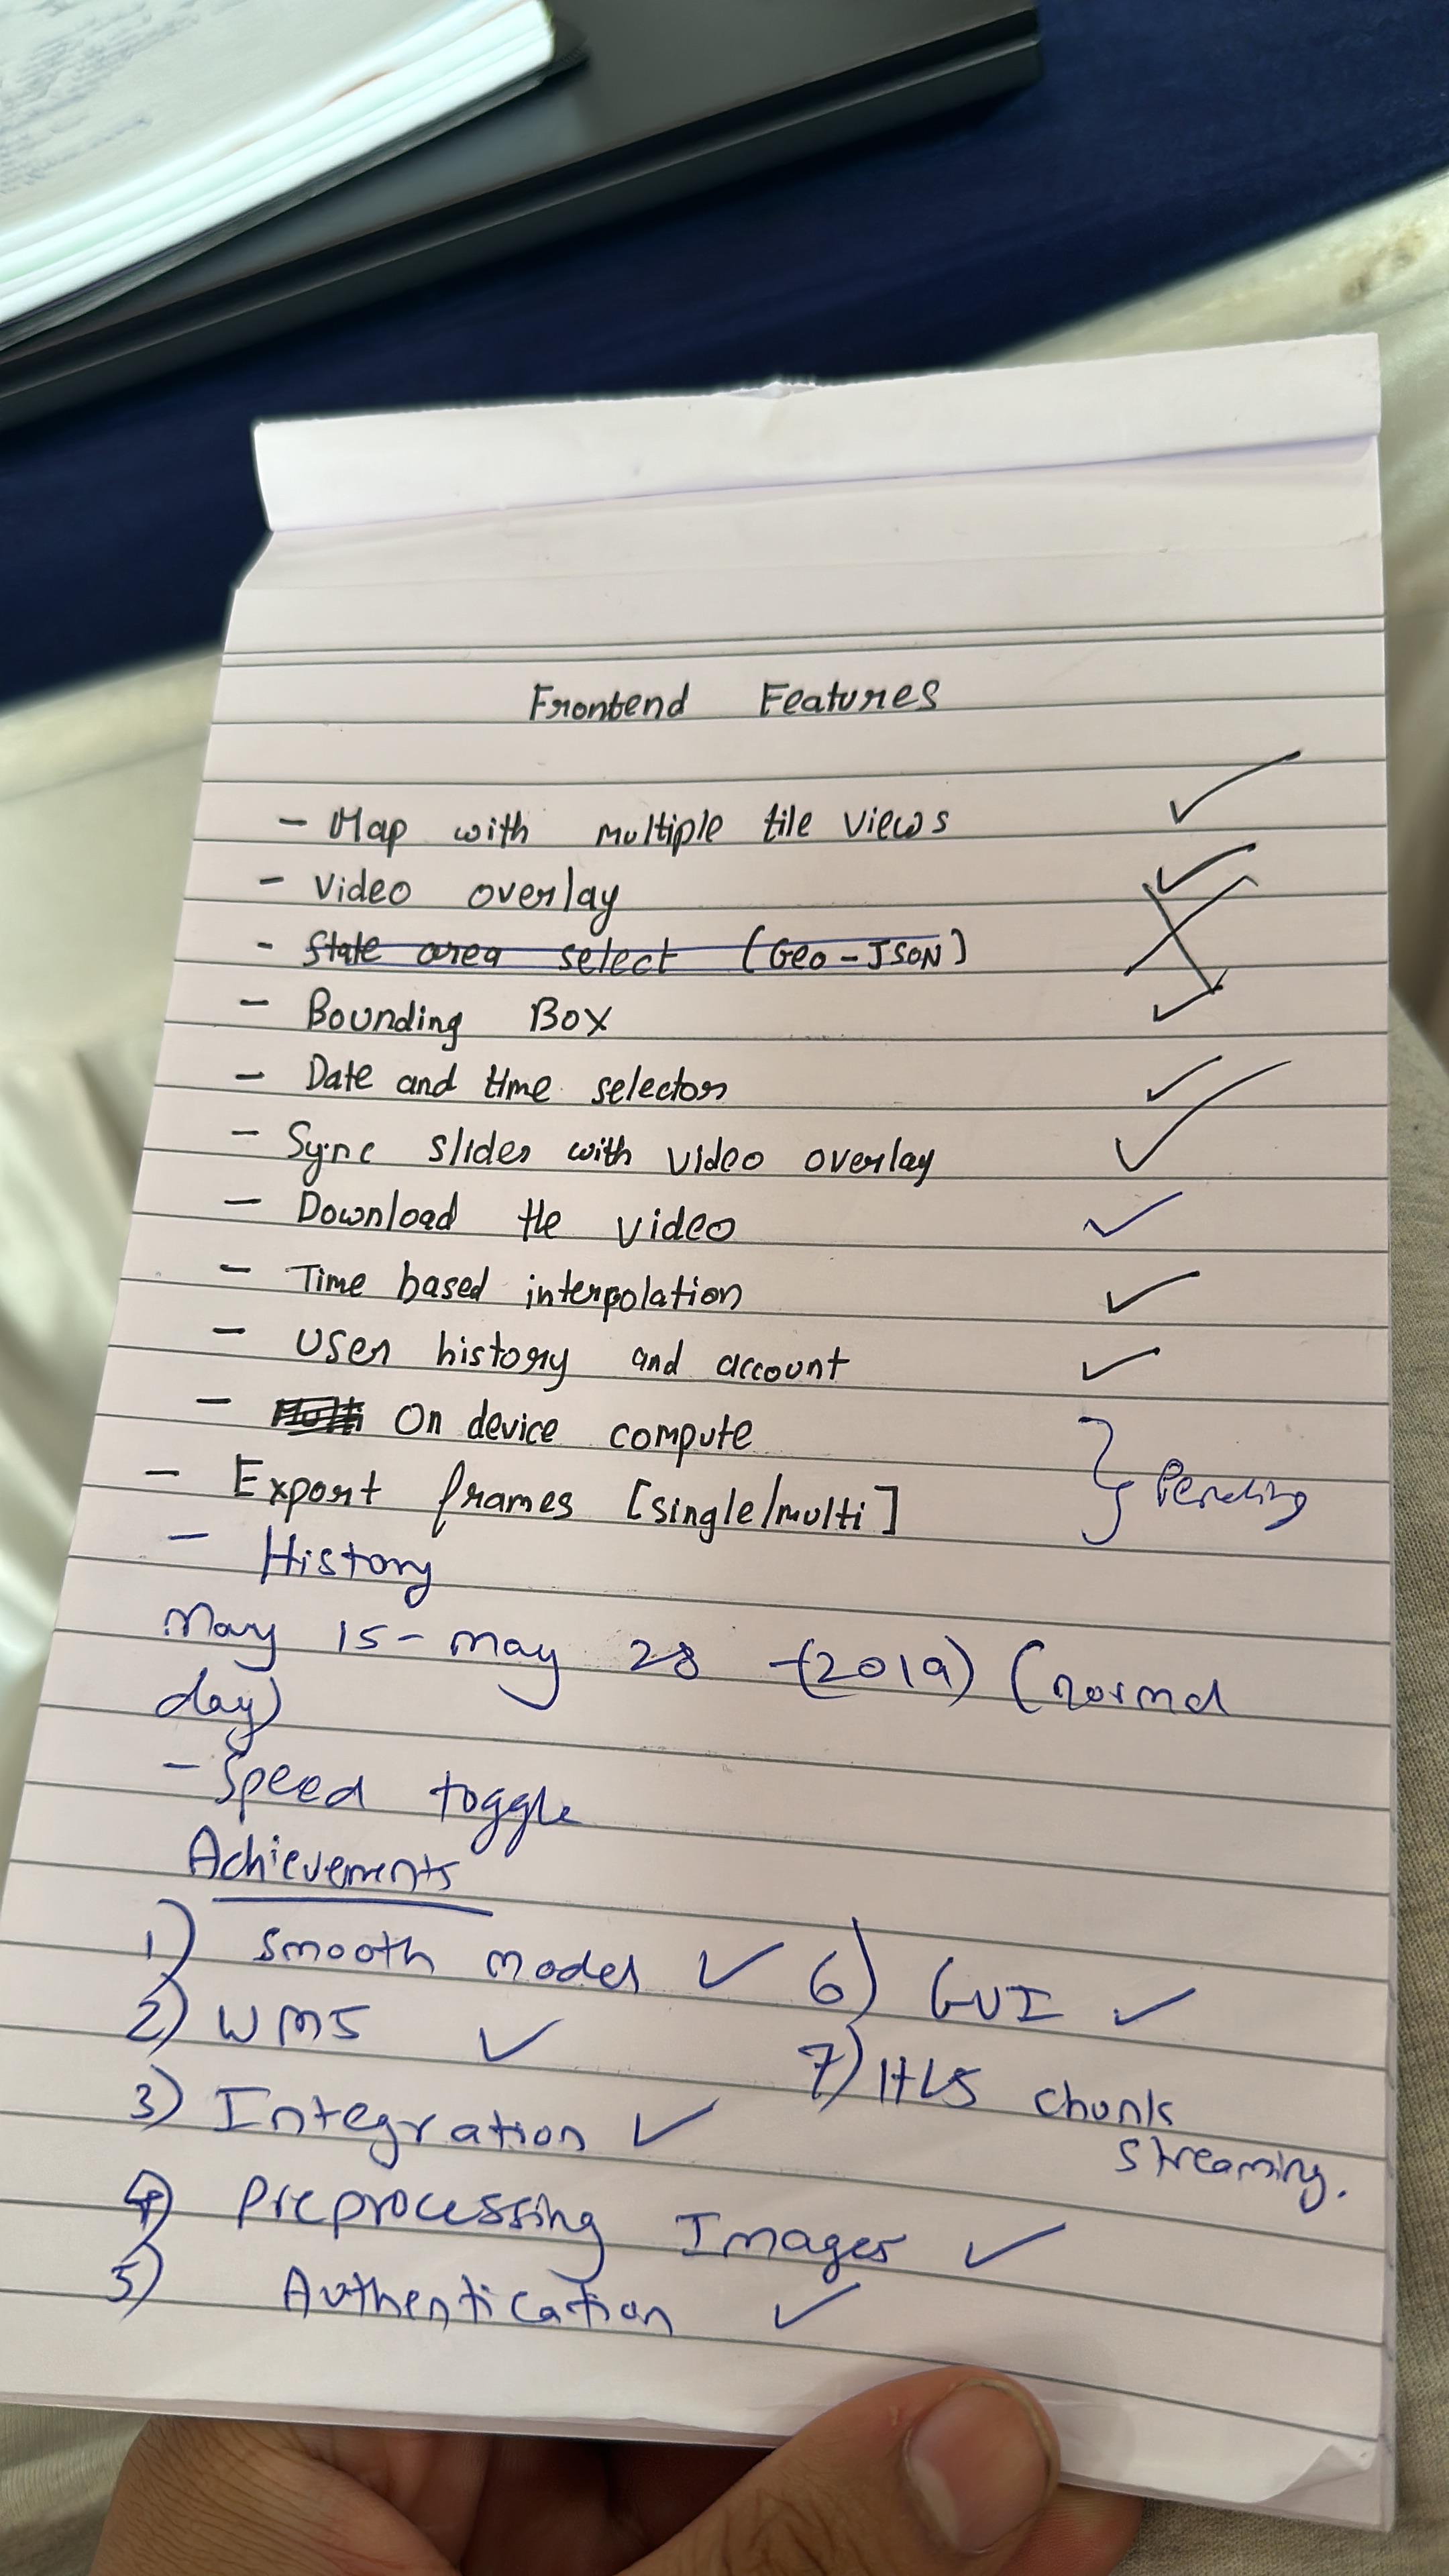 Frontend Features
- Map with multiple tile views ✓
- Video overlay ✓
- State area select (Geo-JSON) ✗
- Bounding Box ✓
- Date and time selector ✓
- Sync slider with video overlay ✓
- Download the video ✓
- Time based interpolation ✓
- User history and account ✓
- On device compute
- Export frames [single/multi] } Pending
- History
May 15 - May 28 - (2019) (normal
day)
- Speed toggle
Achievements
1) Smooth model ✓
2) WMS ✓
3) Integration ✓
4) Preprocessing Images ✓
5) Authentication ✓
6) GUI ✓
7) HLS chunk
streaming.